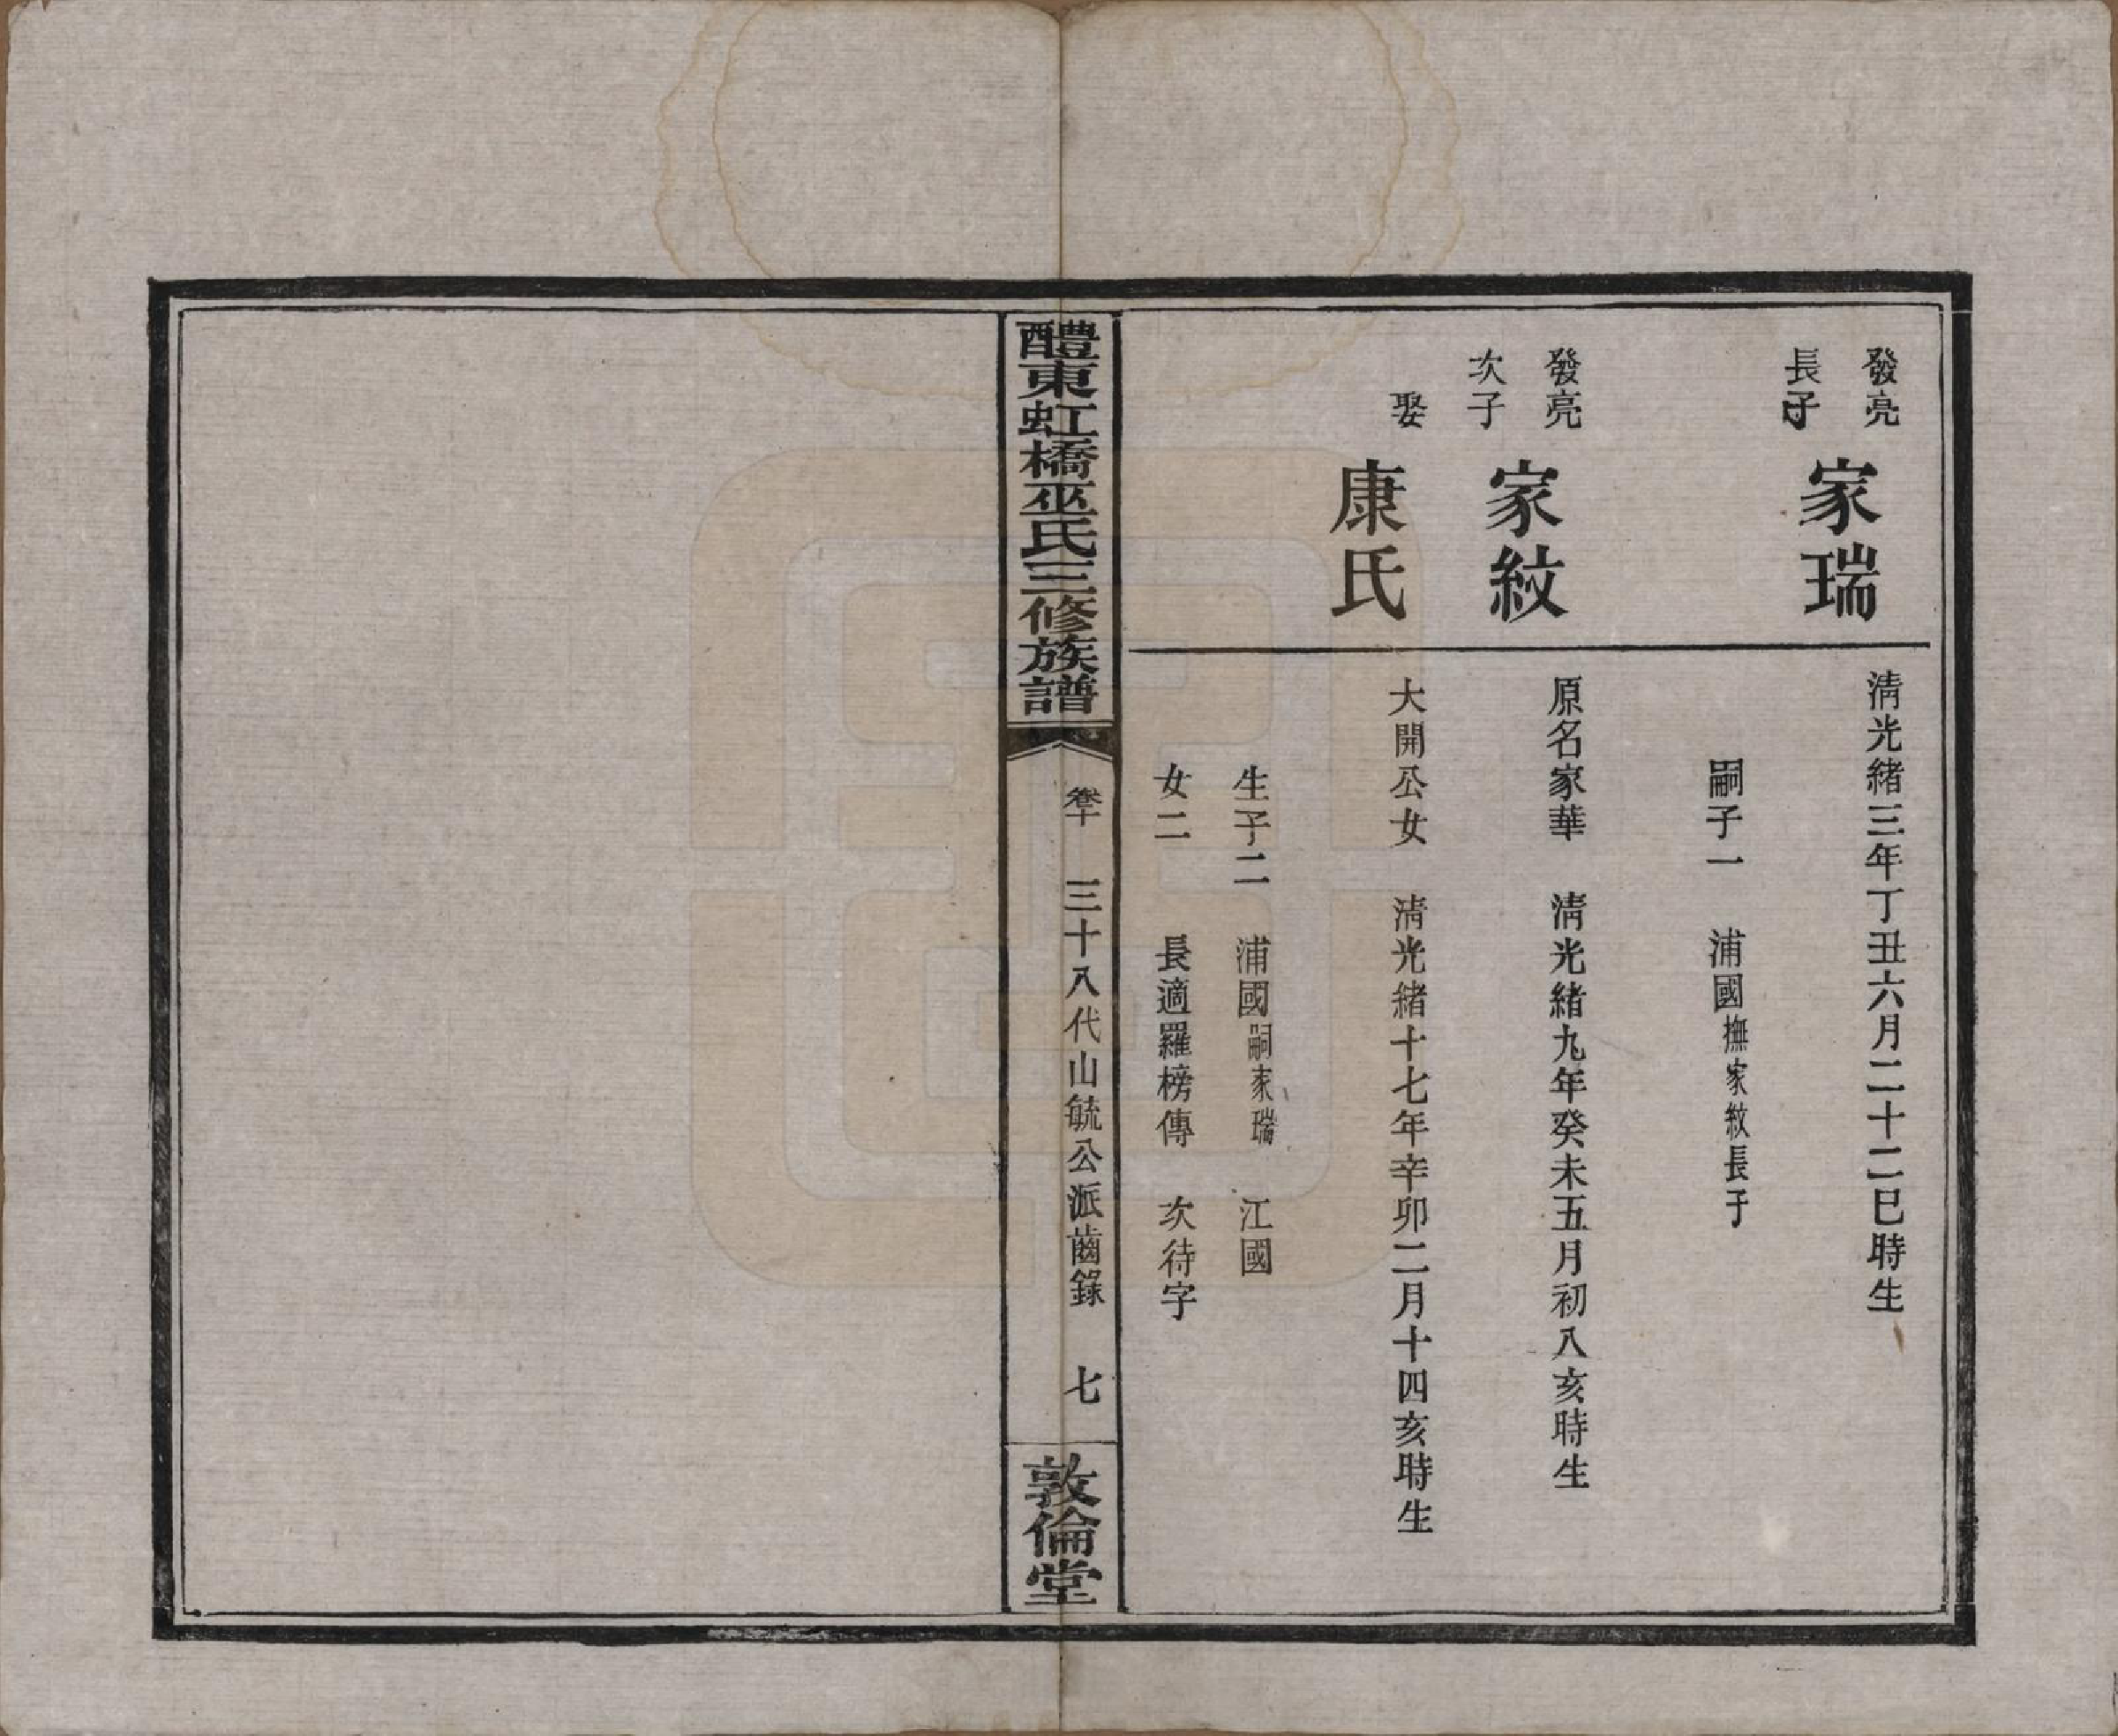 發亮
長子
家瑞
清光緒三年丁丑六月二十二巳時生
嗣子一　浦國撫家紋長子
發亮
次子
家紋
原名家華　清光緒九年癸未五月初八亥時生
娶
康氏
大開公女　清光緒十七年辛卯二月十四亥時生
生子二　浦國嗣家瑞　江國
女二　長適羅榜傳　次待字
醴東虹橋巫氏三修族譜
卷十　三十八代山毓公派齒錄　七
敦倫堂